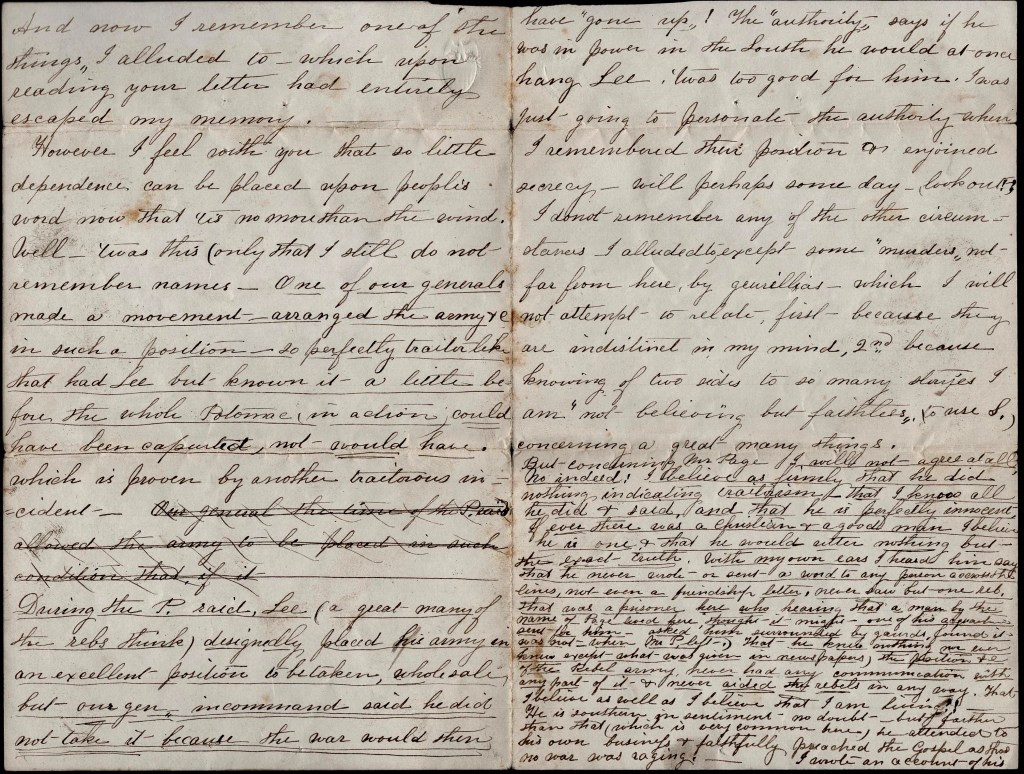 And now I remember one of the
things, I alluded to - which upon
reading your letter had entirely
escaped my memory.
However I feel with you that so little
dependence can be placed upon people's
word now that 'tis no more than the wind.
Well - 'twas this (only that I still do not
remember names - One of our generals
made a movement - arranged the army &c
in such a position - so perfectly traitor like
that had Lee but known it - a little be
fore, the whole Potomac, in action, could
have been captured, not - would have.
which is proven by another traitorous in-
=cident - Our general the time of the P. raid
allowed the army to be placed in such
condition that, if it
During the P. raid, Lee (a great many of
the rebs think) designedly placed his army in
an excellent position to be taken, wholesale,
but - our gen, in command said he did
not take it because the war would then
have "gone up,! The "authority," says if he
was in power in the South he would at once
hang Lee, 'twas too good for him. I was
just going to personate the authority when
I remembered their position & enjoined
secrecy - will perhaps some day - (look out!?
I do not remember any of the other circum-
stances I alluded to, except some "murders," not
far from here, by geurellias - which I will
not attempt to relate, first - because they
are indistinct in my mind, 2nd because
knowing of two sides to so many stories I
am "not believing but faithless," (to use S.)
concerning a great many things.
But concerning Mr Page I will not agree at all,
No indeed! I believe as firmly that he did
nothing indicating traitorism, that I know all
he did & said, and that he is perfectly innocent,
if ever there was a Christian & a good man I believe
he is one & that he would utter nothing but -
the exact truth. With my own ears I heard him say
that he never wrote - or sent a word to any person across the
lines, not even a friendship letter, never saw but one reb,
that was a prisoner here who hearing that a man by the
name of Page lived here thought it might - one of his
sent for him - asked him surrounded by gaurds, found it
was not - when Mr P. left,) that he knew nothing nor ever
knew except what was given in newspapers, the position &c
of the Rebel army, never had any communication with
any part of it & never aided the rebels in any way. That
I believe as well as I believe that I am living!!
He is southern in sentiment - no doubt - but farther
than that (which is very common here,) he attended to
his own business & faithfully preached the Gospel as tho
no war was raging.
I wrote an account of his